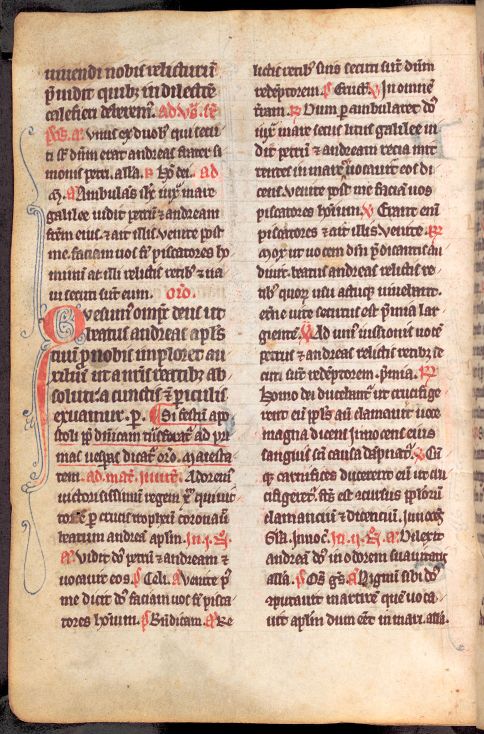 uiuendi nobis relicturū
p̄uidit quibꝫ in dilectōe
calefieri deberemꝰ. ad vs̄. sr̄
pͤs. a. Vnus ex duobꝫ qui secu
ti st̄ dn̄m erat andreas frater si
monis petri. alla. ℟ Hō dei. ad
m̄. a Ambulās ih̄c iux̄ mare
galilee uidit petrū ⁊ andream
frēm eius. ⁊ ait illis venite post
me. faciam uos fi̾ piscatores ho
minū at illi relictis retibꝫ ⁊ na
ui secuti sūt eum. or̄o.
Quesumꝰ omp̄s deus ut
beatus andreas apl̄s
tuū p nobis imploret au
xiliū ut a nr̄is reatibꝫ ab
soluti a cunctis ⁊ piculis
exuamur. p. Si festū ap
stoli p dn̄icam
mas uesꝑas dicat̄ or̄o.
tem. ad mat̄. inuit̄. Adorem̄
uictoriosissimū regem xp̄
ꝑ crucis tropheū coronauit
beatum andreā aplm̄. In .i. n̄.
a. Vidit dn̄s petrū ⁊ andream ⁊
uocauit eos. p̄ Celi. a Venite p̄
me dicit dn̄s faciam uos fi̾ pisca
tores hoīum. p̄ Bn̄dicam. a Re
lictis retibꝫ suis secuti sūt dn̄m
redēptorem. p̄ Eruct̄. v̄ In omnē
tr̄am. ℟ Dum ꝑambularet dn̄s
iux̄ mare secus litus galilee ui
dit petrū ⁊ andream recia mit
tentes in mare ⁊ uocauit eos di
cens. venite post me faciā uos
piscatores hoīum. v̄ Erant eni̅
piscatores ⁊ ait illis venite. ℟
Mox ut uocem dn̄i p̄dicantis au
diuit beatus andreas relictis re
tibꝫ quorꝫ usu actuqꝫ uiuebat
et̄ne uite secutus est p̄mia lar
gientē. v̄ Ad unīꝰ iussionis uocē
petrus ⁊ andreas relictis retibꝫ se
cuti sūt redēptorem. p̄mia. ℟
Homo dei ducebatur ut crucifige
rent eū ppls̄ aū clamauit uoce
magna dicens innocens eius
sanguis sn̄ causa dāpnat̄. v̄ Cū
qꝫ carnifices ducerent eū ut cru
cifigeret̄. fc̄s est concursus pplorū
clamanciū ⁊ dicenciū. Innocēs
Gl̄a. Innoc̄. In .ii. n̄. a. Dilexit
andreā dn̄s in odorem suauitatis
alla. p̄ Om̄s gs̄. a Dignū sibi dn̄s
cputauit martirē quē uoca
uit aplm̄ dum eēt in mari. alla.